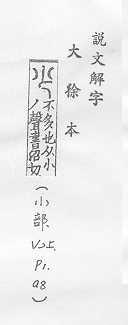 說文解字
大徐本
少 不多也从小
丿聲書沼切
(小部. V2上. P1. a8)